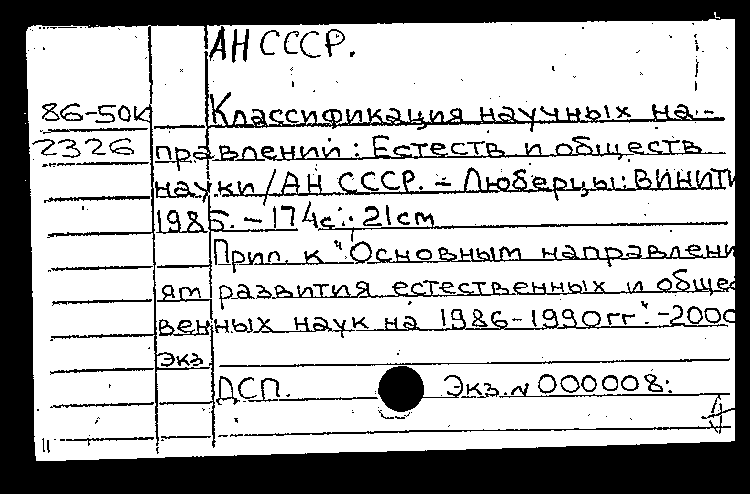 АН СССР.
86-50к
Классификация научных на-
2326
правлений: Естеств и обществ
науки/АН СССР. - Люберцы: ВИНИТИ
1985. - 174с.; 21см
Прил. к "Основным направлени
ям развития естественных и общес
венных наук на 1986-1990гг". - 2000
экз
ДСП. Экз. N 000008: